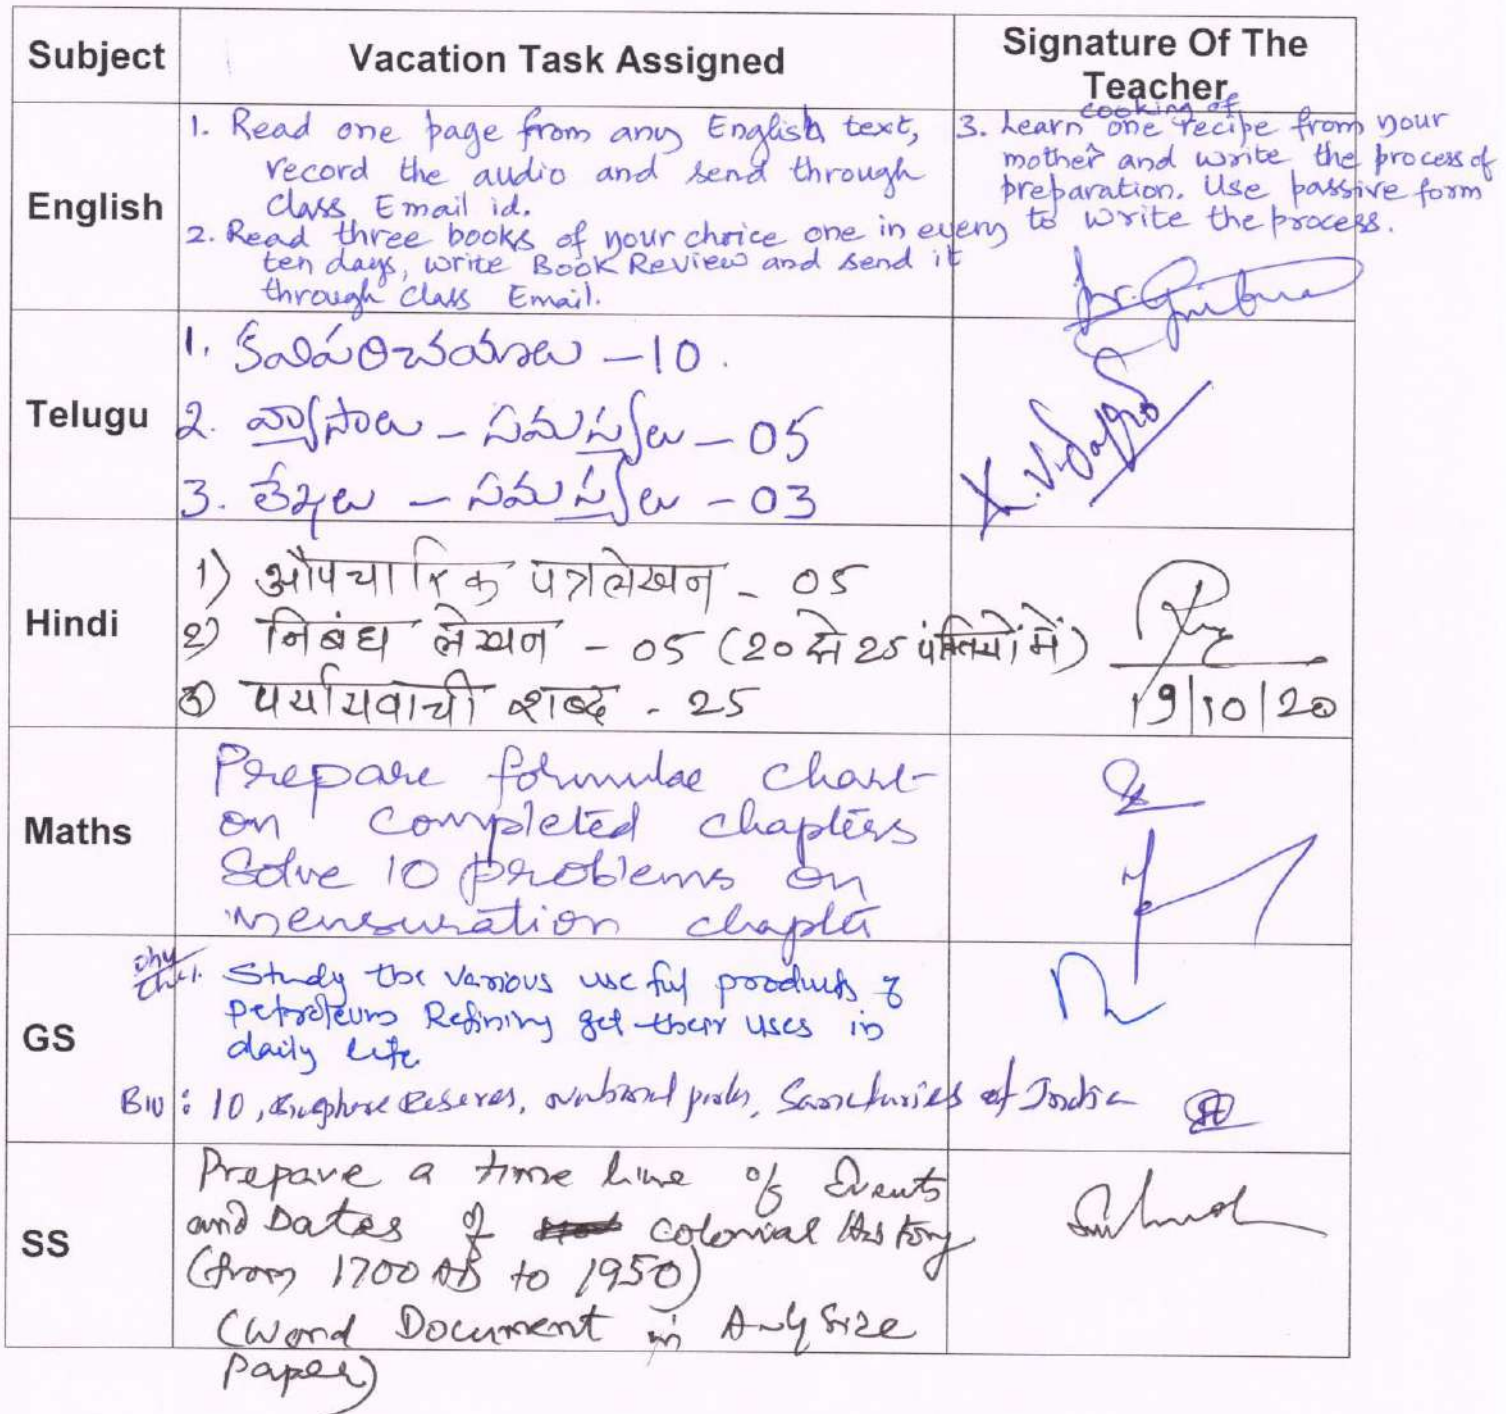 Subject Vacation Task Assigned Signature Of The
Teacher
English
1. Read one page from any English text,
record the audio and send through
class Email id.
2. Read three books of your choice one in every
ten days, write Book Review and send it
through class Email.
cooking of
3. Learn one recipe from your
mother and write the process of
preparation. Use passive form
to write the process.
Telugu
1. కవిపరిచయాలు - 10.
2. వ్యాసాలు - సమస్యలు - 05
3. లేఖలు - సమస్యలు - 03
Hindi
1) औपचारिक पत्रलेखन - 05
2) निबंध लेखन - 05 (20 से 25 पंक्तियों में)
3) पर्यायवाची शब्द - 25
19/10/20
Maths
Prepare formulae chart
on completed chapters
Solve 10 problems on
mensuration chapter
GS
Phy
Study the various useful products of
petroleum Refining get their uses in
daily life
Bio: 10, Biosphere Reserves, National parks, Sanctuaries of India
SS
Prepare a time line of Events
and Dates of colonial History
(from 1700 AD to 1950)
(Word Document in A4 Size
Paper)